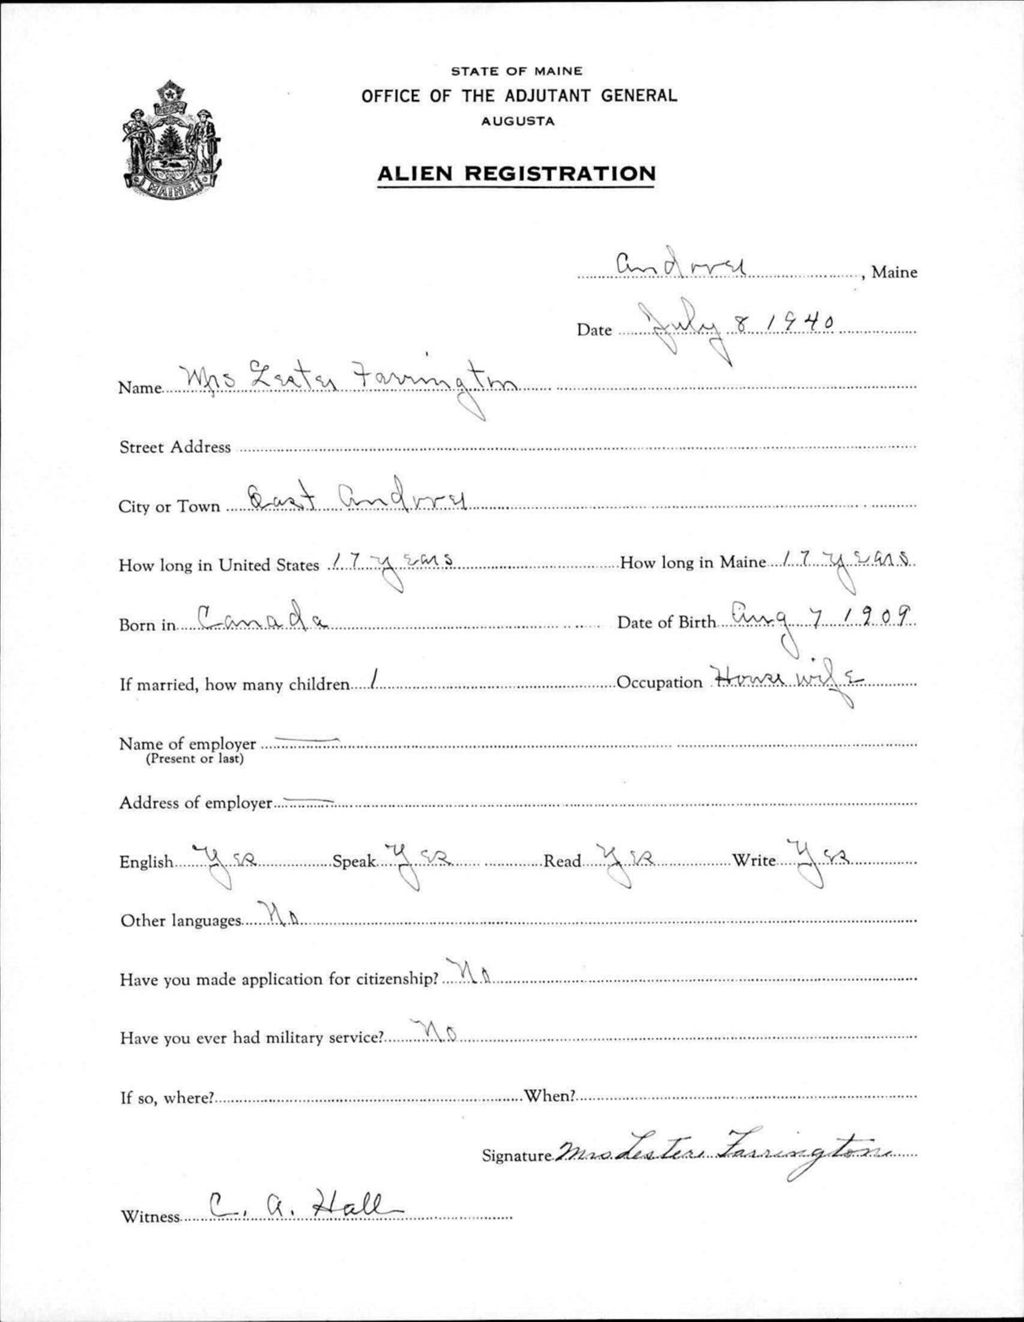 STATE OF MAINE
OFFICE OF THE ADJUTANT GENERAL
AUGUSTA
ALIEN REGISTRATION
MAINE
Andover, Maine
Date July 8 1940
Name Mrs Lester Farrington
Street Address
City or Town East Andover
How long in United States 17 years How long in Maine 17 years
Born in Canada Date of Birth Aug 7 1909
If married, how many children 1 Occupation House wife
Name of employer —
(Present or last)
Address of employer —
English Yes Speak Yes Read Yes Write Yes
Other languages No
Have you made application for citizenship? No
Have you ever had military service? No
If so, where? When?
Signature Mrs Lester Farrington
Witness C. A. Hall